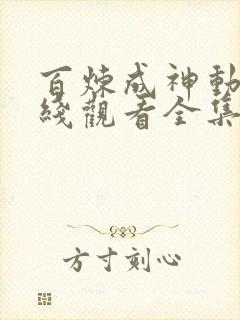 百煉成神動
綫觀看全集
方寸刻心